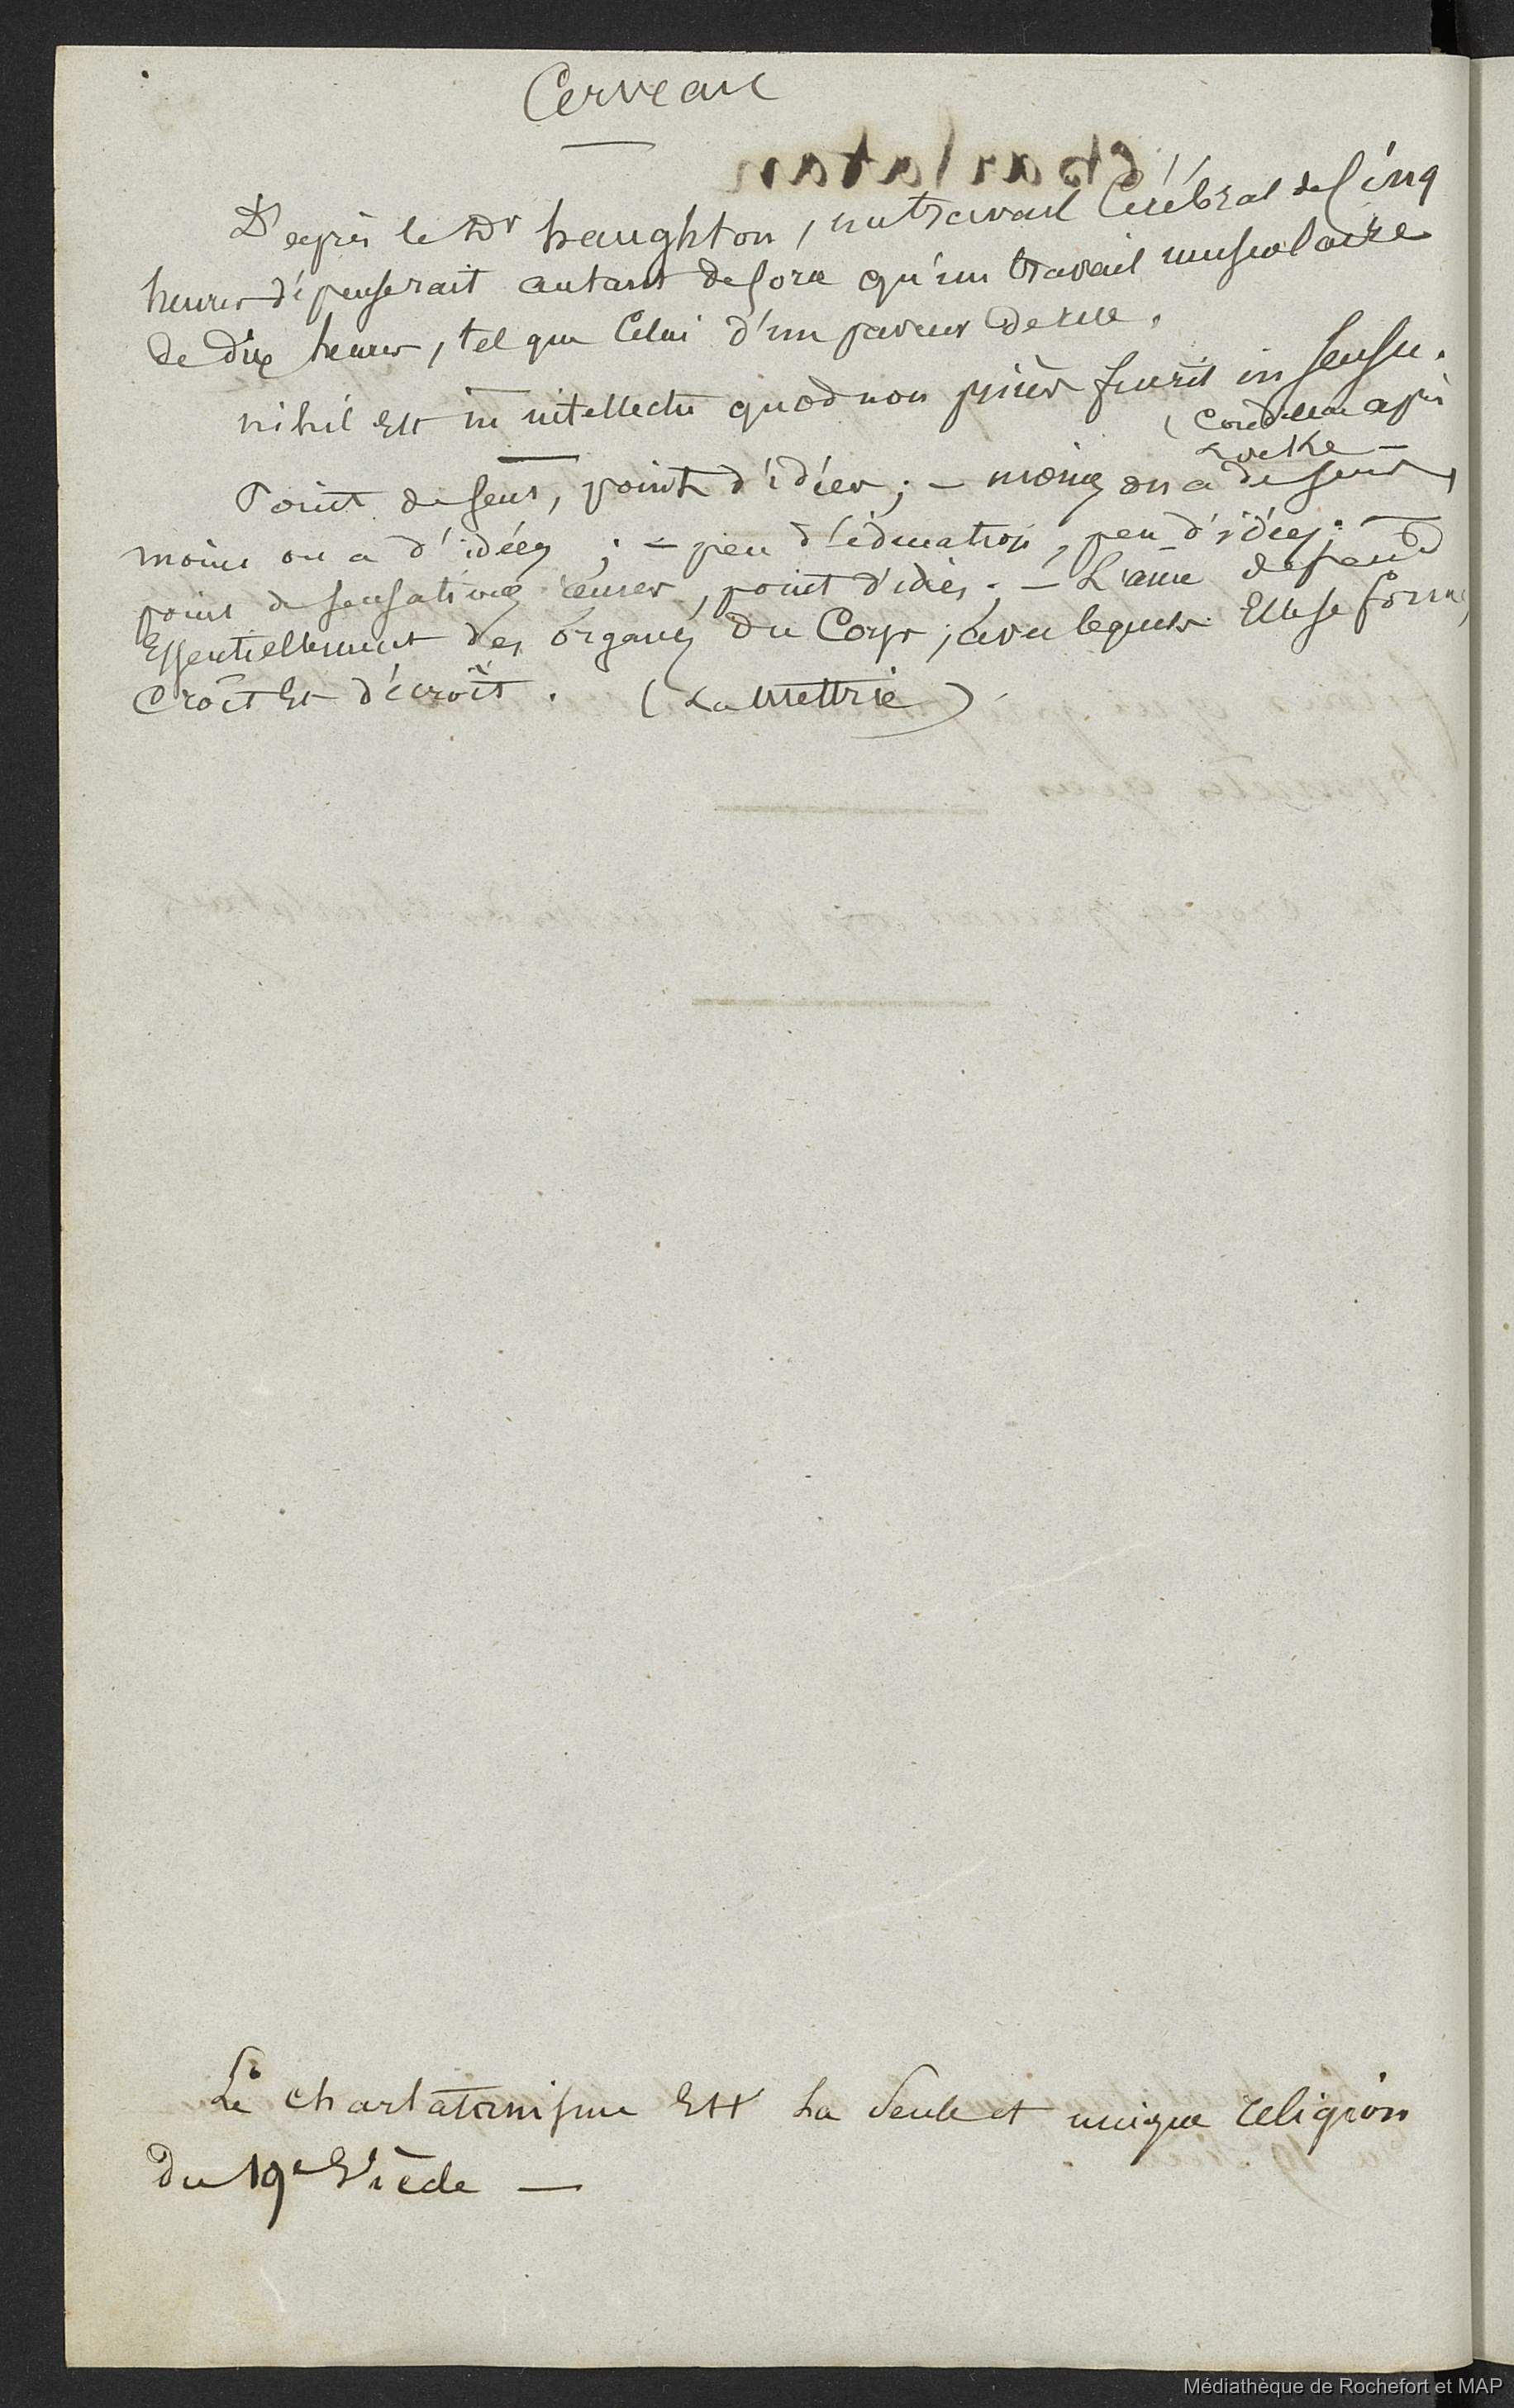 Cerveau
Charlatan
D'après le Dr haughton, un travail Cérébral de Cinq
heures dépenserait autant de force qu'un travail musculaire
de dix heures, tel que Celui d'un paveur de rue.
nihil Est in intellectu quod non priùs fuerit in sensu.
(Condillac après
Locke —
Point de sens, point d'idées ; — moins on a de sens,
moins on a d'idées ; — peu d'éducation, peu d'idées ; —
point de sensations reçues, point d'idées ; — L'âme dépend
Essentiellement des organes du Corps, avec lesquels Elle se forme,
Croît Et décroît. (La Mettrie)
Le charlatanisme Est la Seule et unique religion
du 19e Siècle —
Médiathèque de Rochefort et MAP